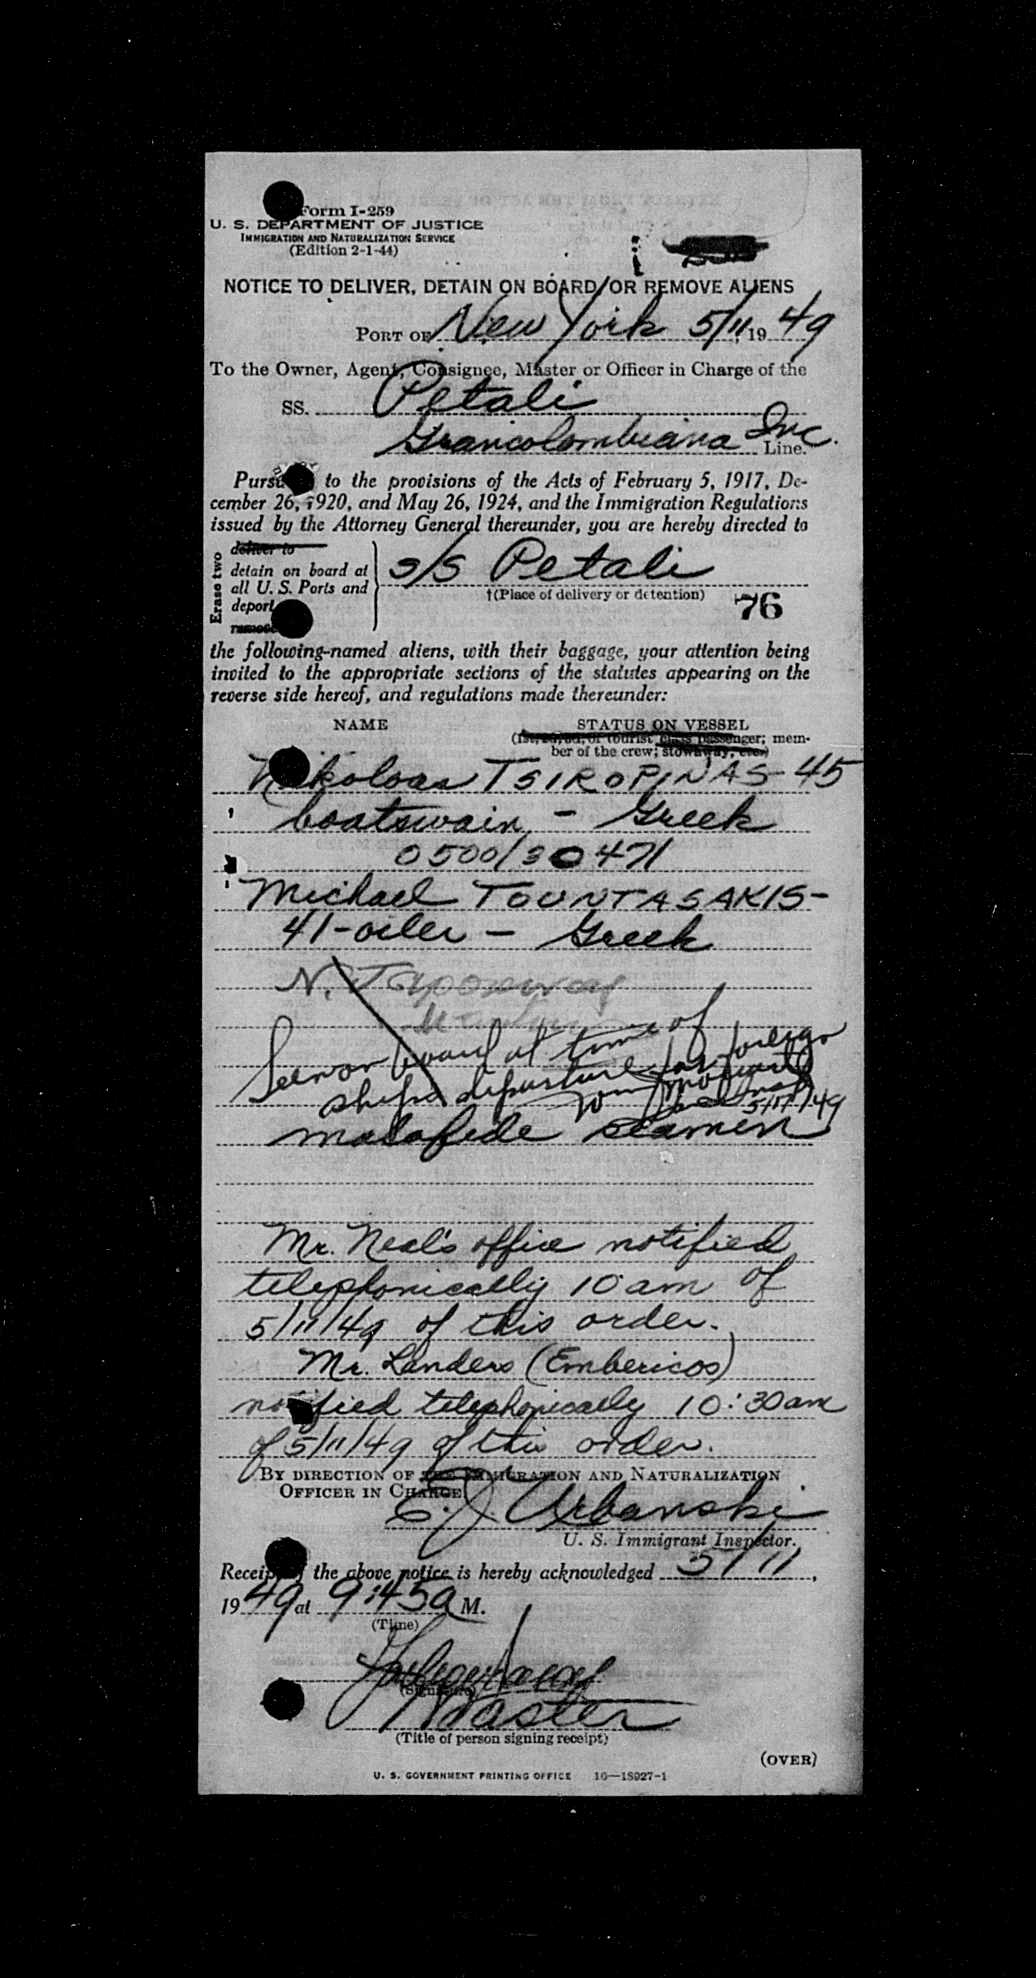 Form I-259
U. S. DEPARTMENT OF JUSTICE
IMMIGRATION AND NATURALIZATION SERVICE
(Edition 2-1-44)
NOTICE TO DELIVER, DETAIN ON BOARD/OR REMOVE ALIENS
PORT OF New York 5/11, 1949
To the Owner, Agent, Consignee, Master or Officer in Charge of the
SS. Petali
Grancolombiana Inc. Line.
Pursu to the provisions of the Acts of February 5, 1917, De-
cember 26, 1920, and May 26, 1924, and the Immigration Regulations
issued by the Attorney General thereunder, you are hereby directed to
Erase two
deliver to
detain on board at
all U. S. Ports and
deport
remove
s/s Petali
†(Place of delivery or detention)
76
the following-named aliens, with their baggage, your attention being
invited to the appropriate sections of the statutes appearing on the
reverse side hereof, and regulations made thereunder:
NAME STATUS ON VESSEL
(1st, 2d, 3d, or tourist class passenger; mem-
ber of the crew; stowaway, etc.)
Nikoloas TSIROPINAS-45
boatswain - Greek
0500/30471
Michael TOUNTASAKIS-
41-oiler - Greek
N.
Seen on board at time of
ships departure for foreign
5/11/49
malafide seamen
Mr. Neal's office notified
telephonically 10 am of
5/11/49 of this order.
Mr. Landers (Embericos)
notified telephonically 10:30am
of 5/11/49 of this order.
BY DIRECTION OF THE IMMIGRATION AND NATURALIZATION
OFFICER IN CHARGE
E. J. Urbanski
U. S. Immigrant Inspector.
Receipt of the above notice is hereby acknowledged 5/11,
1949 at 9:45a M.
(Time)
(Signature)
Master
(Title of person signing receipt)
(OVER)
U. S. GOVERNMENT PRINTING OFFICE 16—18927-1